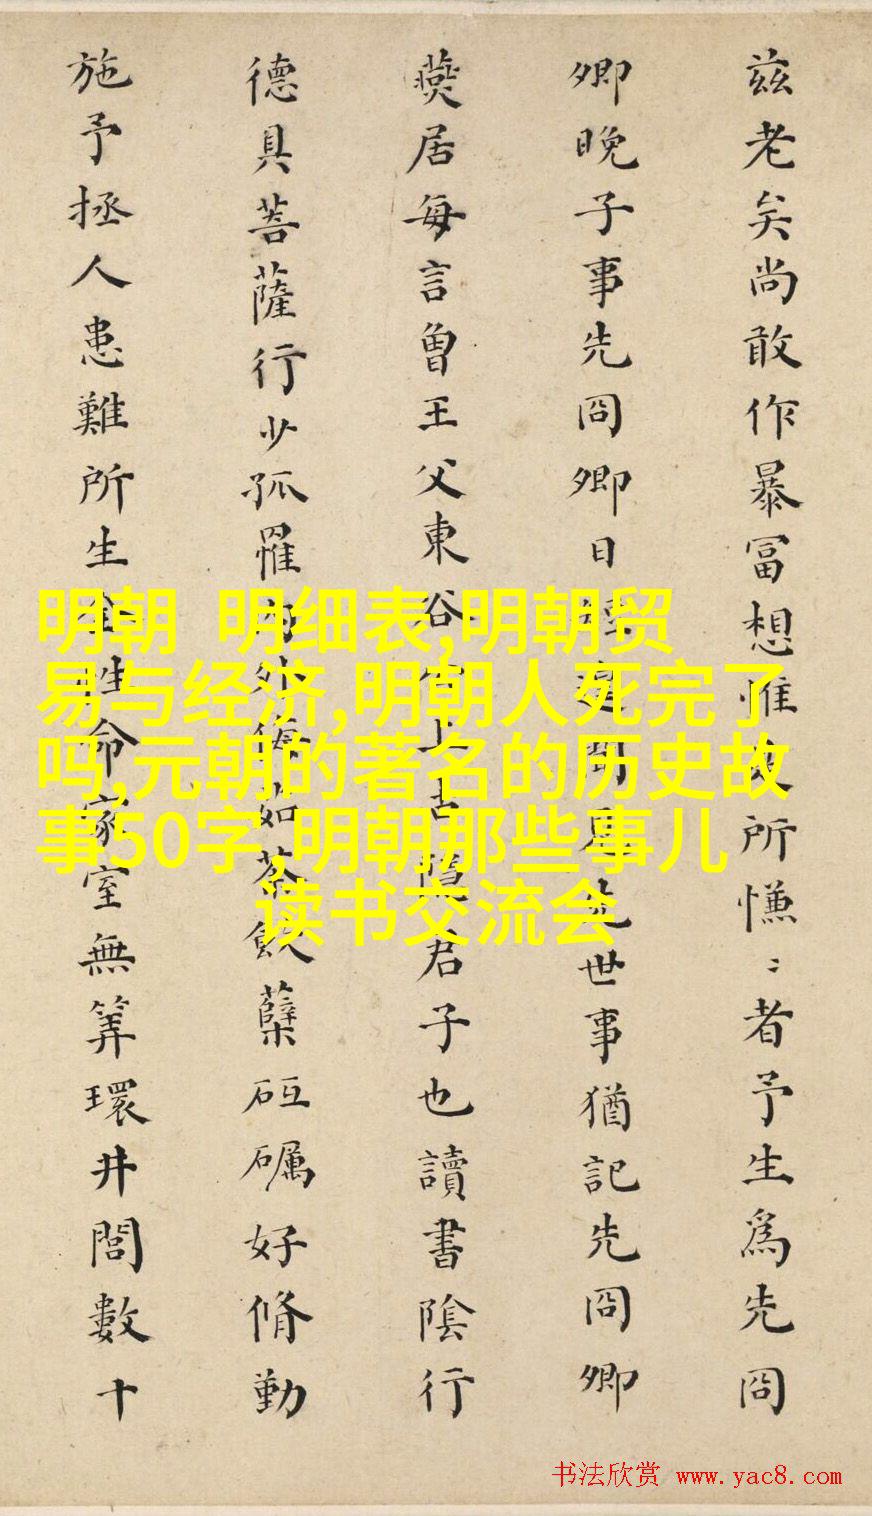 兹老矣尚敢作暴富想惟所慊〻者予生為先冏
卿晚子事先冏卿日世事猶記先冏卿
燕居每言曾王父東谷隱君子也讀書陰行
德具菩薩行少孤罹外侮如荼飲蘖砥礪好脩勤
施予拯人患難所生全姓命家室無筭環井閭數十
明朝 明细表,明朝贸
易与经济,明朝人死完了
吗,元朝的著名的历史故
事50字,明朝那些事儿
读书交流会
书法欣赏 www.yac8.com